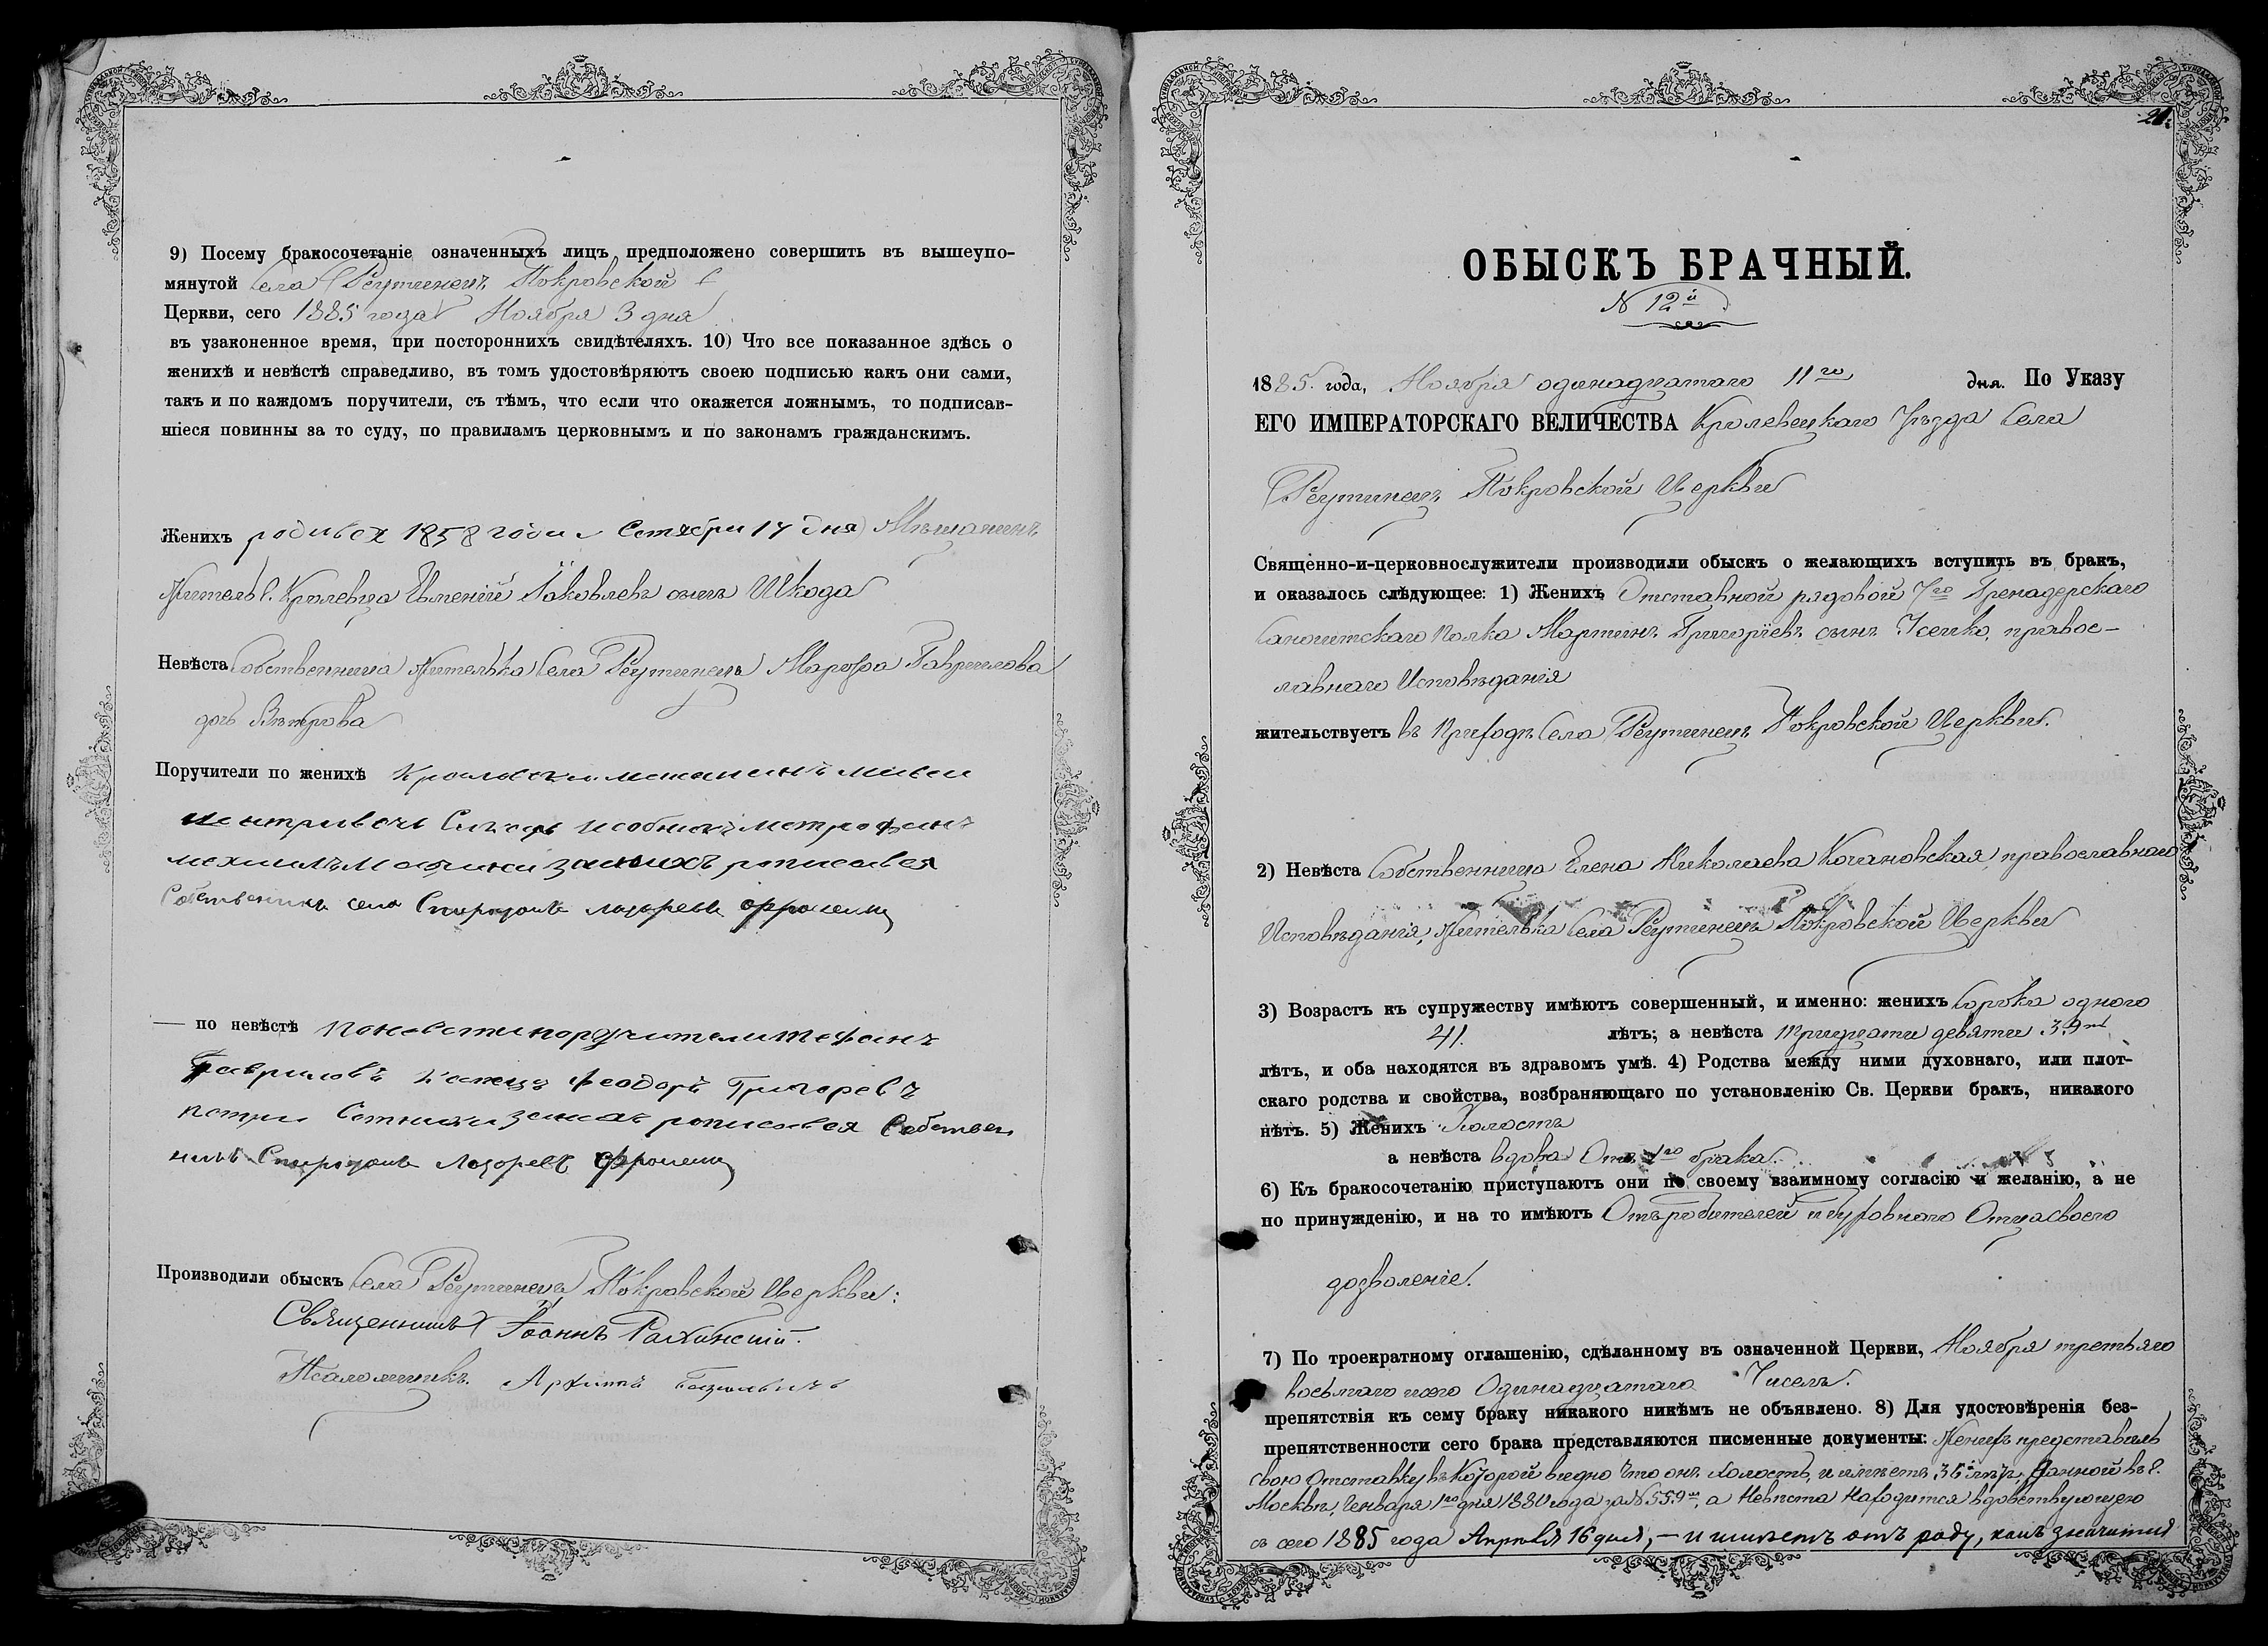 9) Посему бракосочетаніе означенныхъ лицъ предположено совершить въ вышеупо-
мянутой Села Реутинецъ Покровской
Церкви, сего 1885 года Ноября 3 дня
въ узаконенное время, при постороннихъ свидѣтеляхъ. 10) Что все показанное здѣсь о
женихѣ и невѣстѣ справедливо, въ томъ удостовѣряютъ своею подписью какъ они сами,
такъ и по каждомъ поручители, съ тѣмъ, что если что окажется ложнымъ, то подписав-
шіеся повинны за то суду, по правиламъ церковнымъ и по законамъ гражданскимъ.
Женихъ родився 1858 года Сентября 17 дня Мѣщанинъ
Житель г. Кролевца Евменій Яковлевъ сынъ Шкода
Невѣста Собственница Жителька Села Реутинецъ Марфа Гаврилова
дочь Вѣтрова
Поручители по женихѣ
Собственникъ села Спиридонъ Лазоревъ
— по невѣстѣ поручители
Гавриловъ Феодоръ Григоревъ
росписався Собствен
никъ Спиридонъ Лазоревъ
Производили обыскъ Села Реутинецъ Покровской Церкви:
Священникъ Іоаннъ
Псаломщикъ
21
ОБЫСКЪ БРАЧНЫЙ.
N 12й
1885. года, Ноября одинадцатаго 11го дня. По Указу
ЕГО ИМПЕРАТОРСКАГО ВЕЛИЧЕСТВА Кролевецкаго Уѣзда Села
Реутинецъ Покровской Церкви
Священно-и-церковнослужители производили обыскъ о желающихъ вступить въ бракъ,
и оказалось слѣдующее: 1) Женихъ Отставной рядовой 7го Гренадерскаго
Самогитскаго Полка Мартинъ Григоріевъ сынъ Усенко, правос-
лавнаго Исповѣданія
жительствуетъ въ Приходѣ Села Реутинецъ Покровской Церкви.
2) Невѣста Собственница Елена Николаева Кочановская, православнаго
Исповѣданія, Жителька Села Реутинецъ Покровской Церкви
3) Возрастъ къ супружеству имѣютъ совершенный, и именно: женихъ Сорока одного
41. лѣтъ; а невѣста Тридцати девяти 39ти
лѣтъ, и оба находятся въ здравомъ умѣ. 4) Родства между ними духовнаго, или плот-
скаго родства и свойства, возбраняющаго по установленію Св. Церкви бракъ, никакого
нѣтъ. 5) Женихъ Холостъ
а невѣста вдова Отъ 1го брака.
6) Къ бракосочетанію приступаютъ они по своему взаимному согласію и желанію, а не
по принужденію, и на то имѣютъ Отъ родителей и духовнаго Отца своего
дозволеніе.
7) По троекратному оглашенію, сдѣланному въ означенной Церкви, Ноября третьяго
восьмаго и Одинадцатаго Чиселъ.
препятствія къ сему браку никакого никѣмъ не объявлено. 8) Для удостовѣренія без-
препятственности сего брака представляются писменные документы: Женихъ представилъ
свою Отставку въ Которой видно что онъ Холостъ, и имѣетъ 36 лѣтъ, Данной въ г.
Москвѣ, Генваря 1го дня 1880 года за N 559м, а Невѣста Находится вдовствующею
съ сего 1885 года Апрѣля 16 дня; — и имѣетъ отъ роду, какъ значится